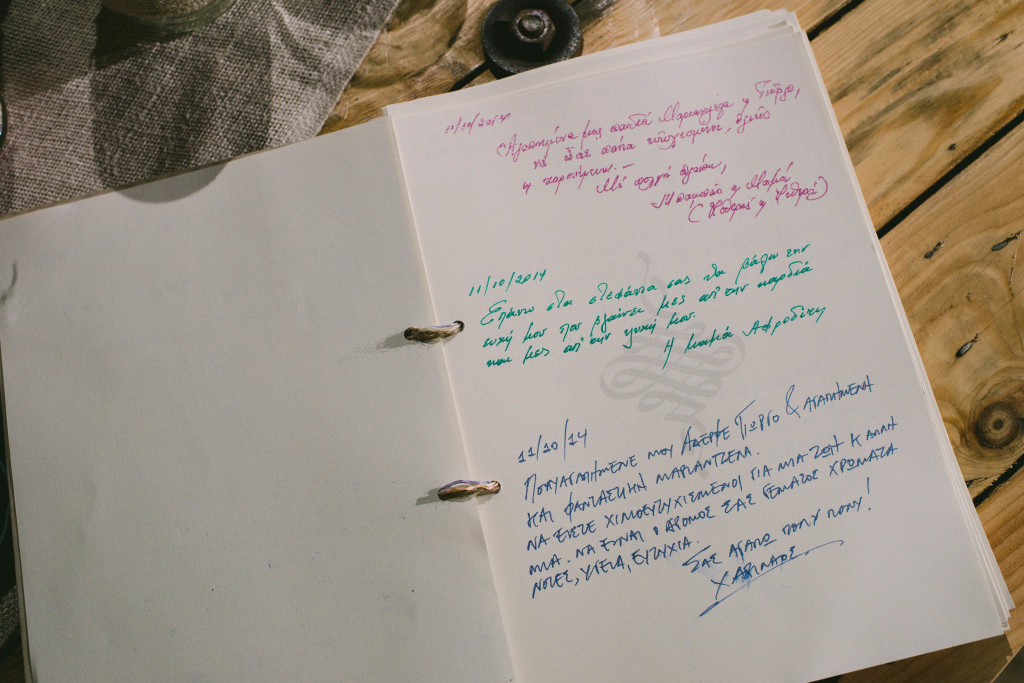 11/10/2014
Αγαπημένα μας παιδιά Μαριαντζέλα η Γιώργο,
να είστε πάντα ευτυχισμένοι, υγιείς
η καρπεροί.—
Με πολλή αγάπη,
Μπαμπάς η Μαμά
(Πεθερός η Πεθερά)
11/10/2014
Επάνω στα στεφάνια σας θα βάλω την
ευχή μου που βγαίνει μες απ' την καρδιά
και μες απ' την ψυχή μου.
Η μαμά Αφροδίτη
11/10/14
ΠΟΛΥΑΓΑΠΗΜΕΝΕ ΜΟΥ ΑΔΕΡΦΕ ΓΙΩΡΓΟ & ΑΓΑΠΗΜΕΝΗ
ΚΑΙ ΦΑΝΤΑΣΤΙΚΗ ΜΑΡΙΑΝΤΖΕΛΑ.
ΝΑ ΕΙΣΤΕ ΧΙΛΙΟΕΥΤΥΧΙΣΜΕΝΟΙ ΓΙΑ ΜΙΑ ΖΩΗ Κ ΑΛΛΗ
ΜΙΑ. ΝΑ ΕΙΝΑΙ Ο ΔΡΟΜΟΣ ΣΑΣ ΓΕΜΑΤΟΣ ΧΡΩΜΑΤΑ
ΝΟΤΕΣ, ΥΓΕΙΑ, ΕΥΤΥΧΙΑ.
ΣΑΣ ΑΓΑΠΩ ΠΟΛΥ ΠΟΛΥ!